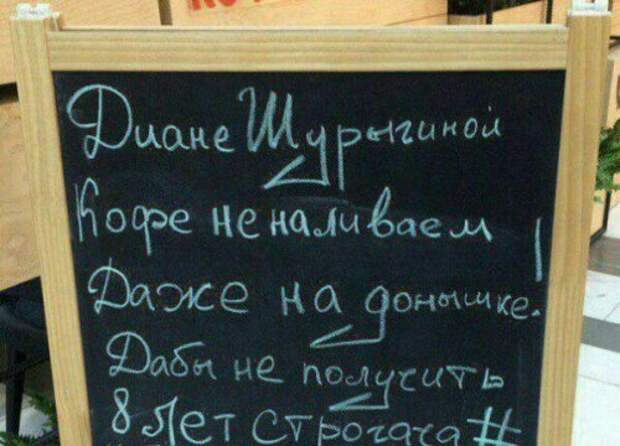 Диане Шурыгиной
Кофе не наливаем!
Даже на донышке.
Дабы не получить
8 лет строгача #